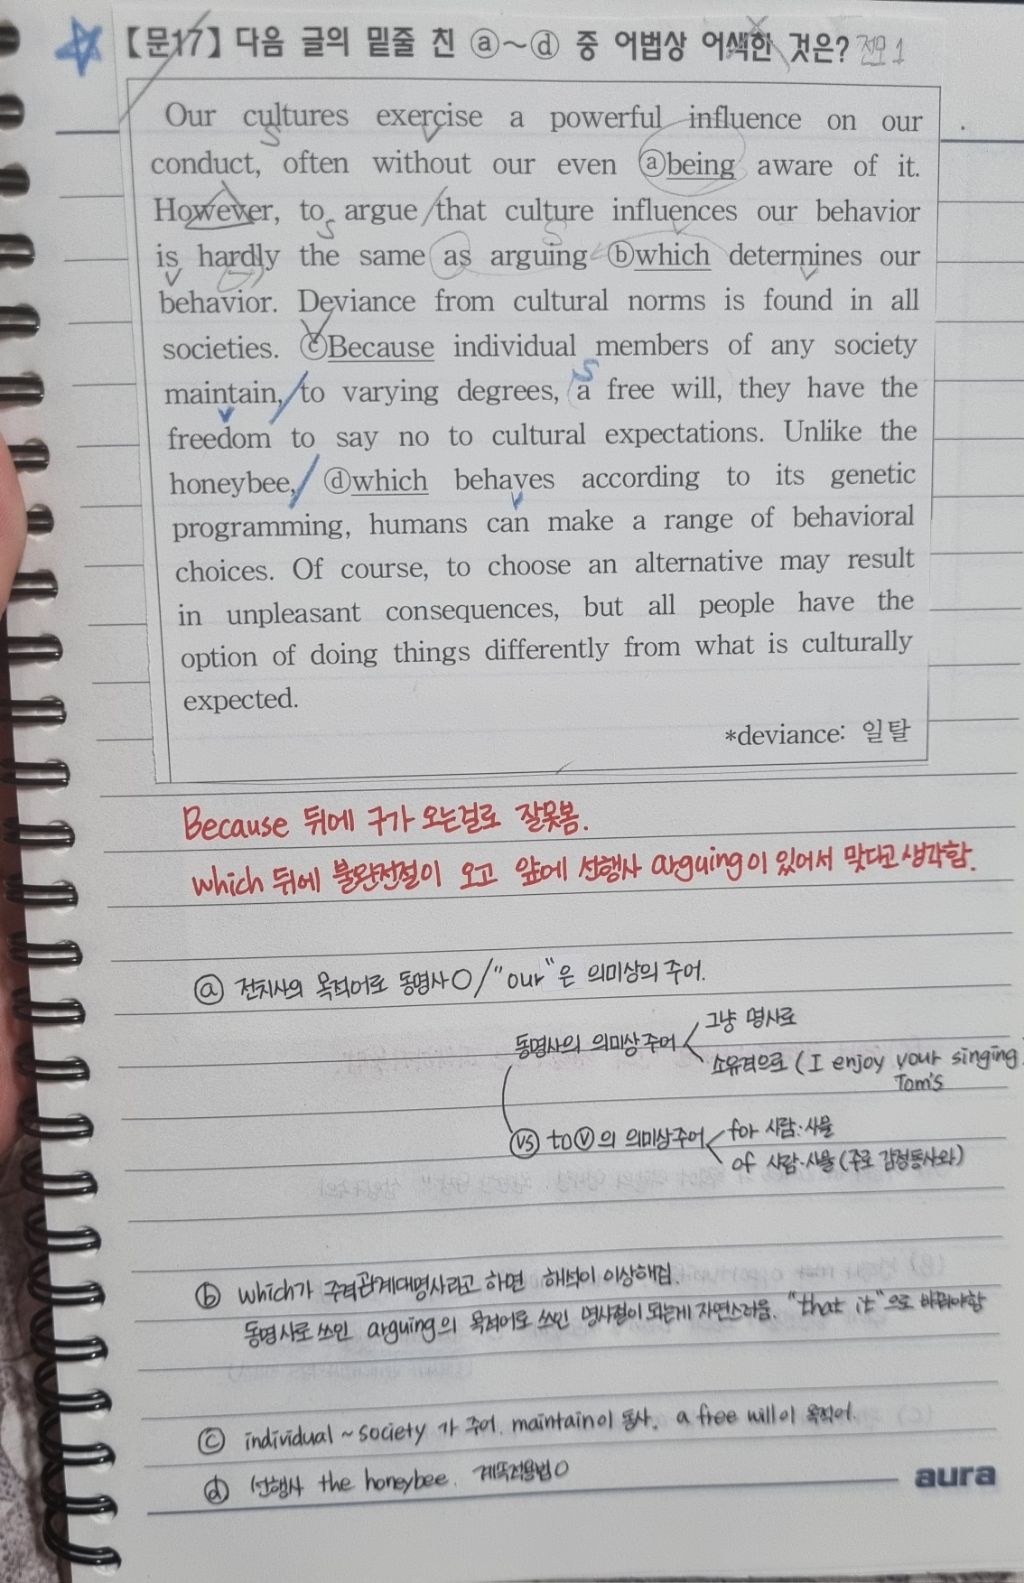 【문17】 다음 글의 밑줄 친 ⓐ~ⓓ 중 어법상 어색한 것은? 전모 1
Our cultures exercise a powerful influence on our
conduct, often without our even ⓐbeing aware of it.
However, to argue that culture influences our behavior
is hardly the same as arguing ⓑwhich determines our
behavior. Deviance from cultural norms is found in all
societies. ⓒBecause individual members of any society
maintain, to varying degrees, a free will, they have the
freedom to say no to cultural expectations. Unlike the
honeybee, ⓓwhich behaves according to its genetic
programming, humans can make a range of behavioral
choices. Of course, to choose an alternative may result
in unpleasant consequences, but all people have the
option of doing things differently from what is culturally
expected.
*deviance: 일탈
Because 뒤에 구가 오는걸로 잘못봄.
which 뒤에 불완전절이 오고 앞에 선행사 arguing이 있어서 맞다고 생각함.
ⓐ 전치사의 목적어로 동명사 O / "our"은 의미상의 주어.
그냥 명사로
동명사의 의미상주어
소유격으로 (I enjoy your singing
Tom's
for 사람·사물
vs to ⓥ의 의미상주어
of 사람·사물 (주로 감정동사와)
ⓑ which가 주격관계대명사라고 하면 해석이 이상해짐.
동명사로 쓰인 arguing의 목적어로 쓰인 명사절이 되는게 자연스러움. "that it"으로 바꿔야함
ⓒ individual ~ society 가 주어. maintain이 동사. a free will이 목적어.
ⓓ 선행사 the honeybee. 계속적용법O
aura